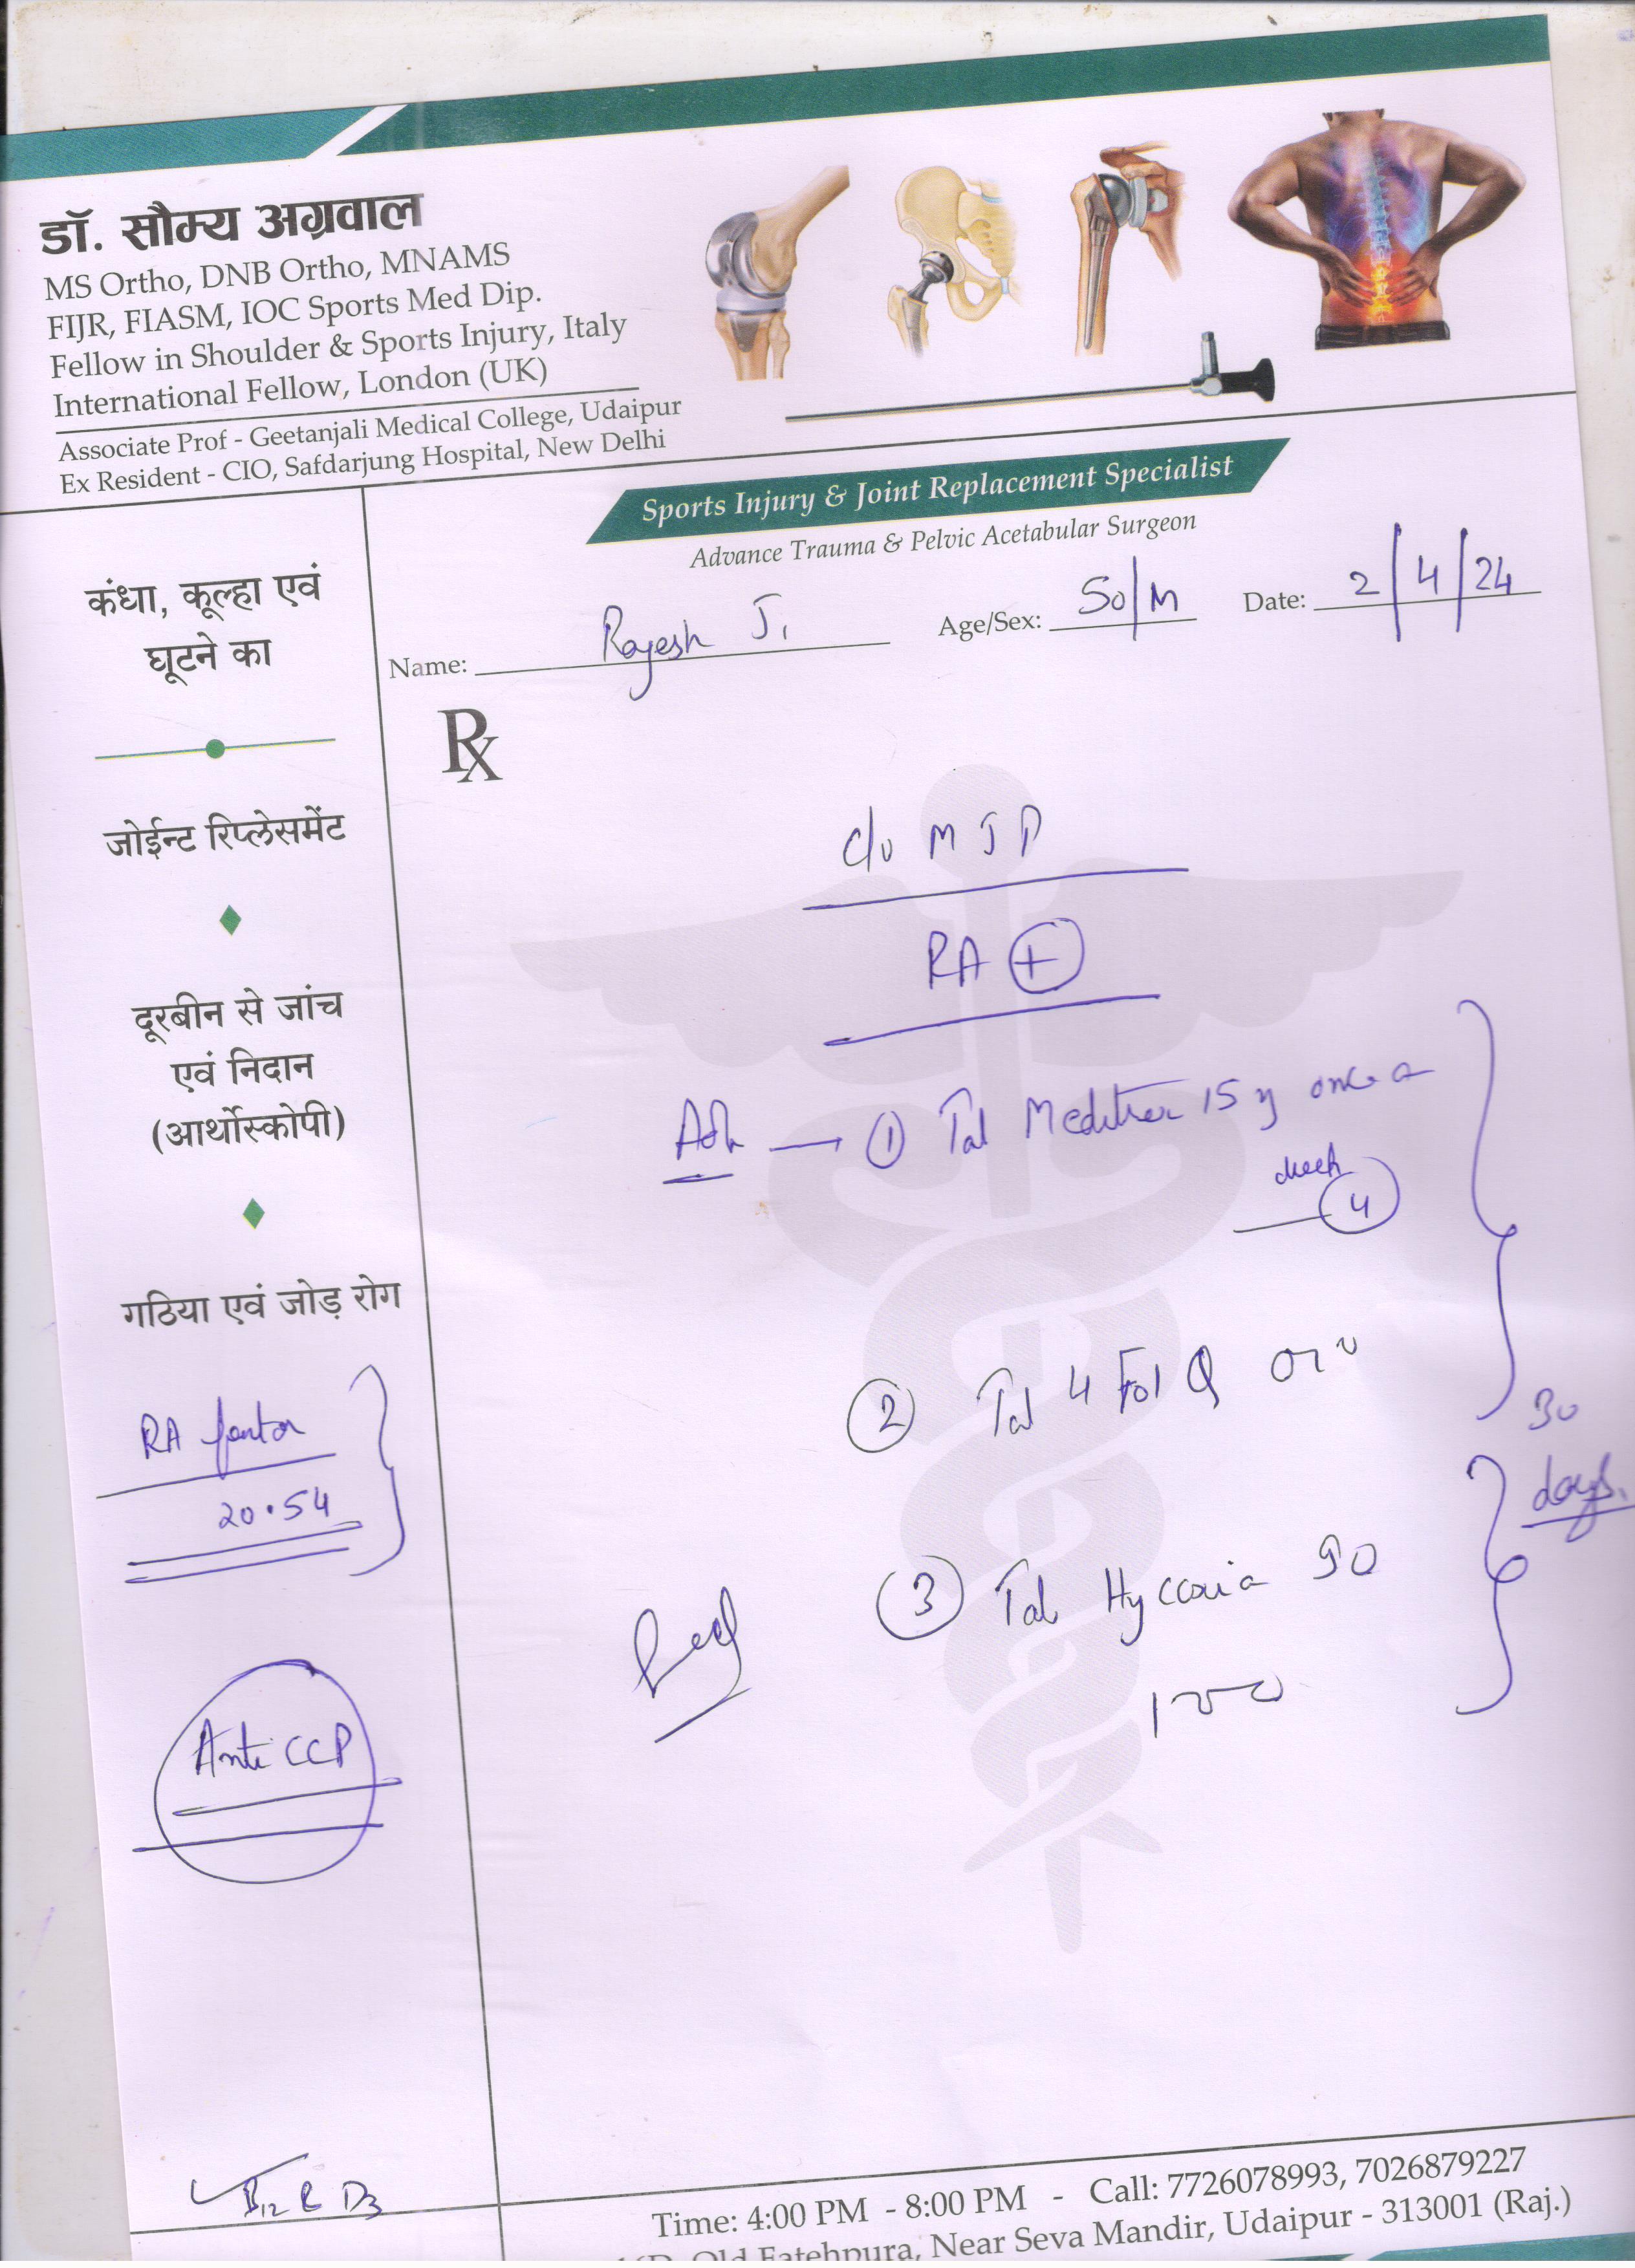 डॉ. सौम्य अग्रवाल
MS Ortho, DNB Ortho, MNAMS
FIJR, FIASM, IOC Sports Med Dip.
Fellow in Shoulder & Sports Injury, Italy
International Fellow, London (UK)
Associate Prof - Geetanjali Medical College, Udaipur
Ex Resident - CIO, Safdarjung Hospital, New Delhi
Sports Injury & Joint Replacement Specialist
Advance Trauma & Pelvic Acetabular Surgeon
Name: Rajesh Ji Age/Sex: 50/M Date: 2/4/24
Rx
कंधा, कूल्हा एवं
घूटने का
जोईन्ट रिप्लेसमेंट
दूरबीन से जांच
एवं निदान
(आर्थोस्कोपी)
गठिया एवं जोड़ रोग
RA factor
20.54
Anti CCP
B12 & D3
MJP
RA +
1 Tab 15 once a
week
4
2 Tab 4 Fol Q
3 Tab
30
days.
Time: 4:00 PM - 8:00 PM - Call: 7726078993, 7026879227
Old Fatehpura, Near Seva Mandir, Udaipur - 313001 (Raj.)